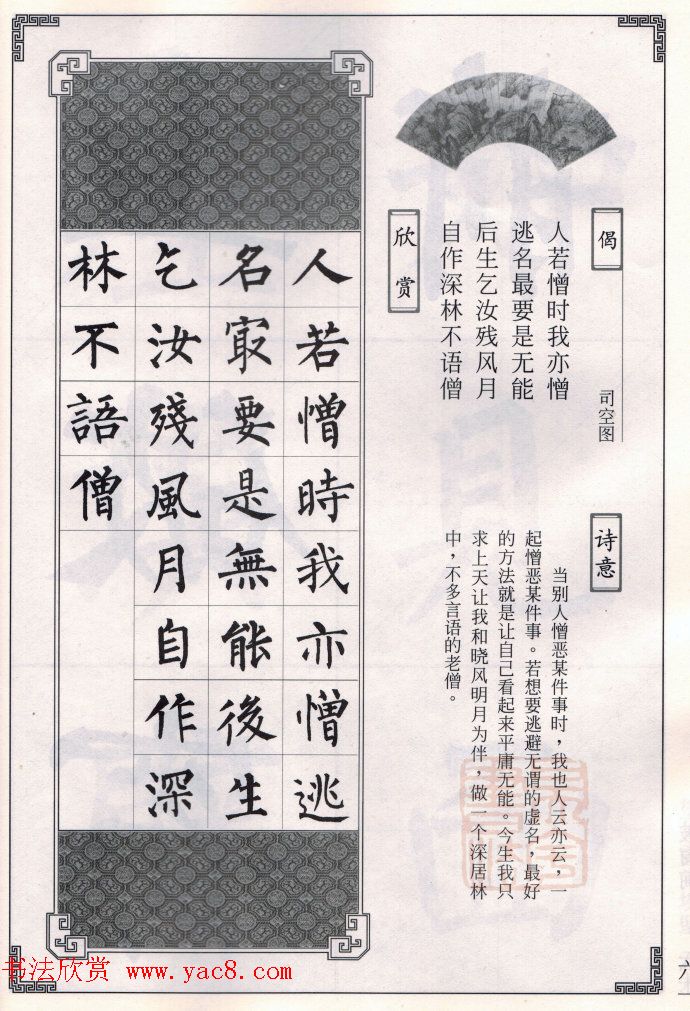 偈
司空图
人若憎时我亦憎
逃名最要是无能
后生乞汝残风月
自作深林不语僧
诗意
当别人憎恶某件事时，我也人云亦云，一
起憎恶某件事。若想要逃避无谓的虚名，最好
的方法就是让自己看起来平庸无能。今生我只
求上天让我和晓风明月为伴，做一个深居林
中，不多言语的老僧。
欣赏
人若憎時我亦憎逃
名冣要是無能後生
乞汝殘風月自作深
林不語僧
书法欣赏 www.yac8.com